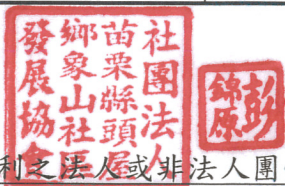 社團法人
苗栗縣頭屋
鄉象山社區
發展協會
彭
錦原
利之法人或非法人團